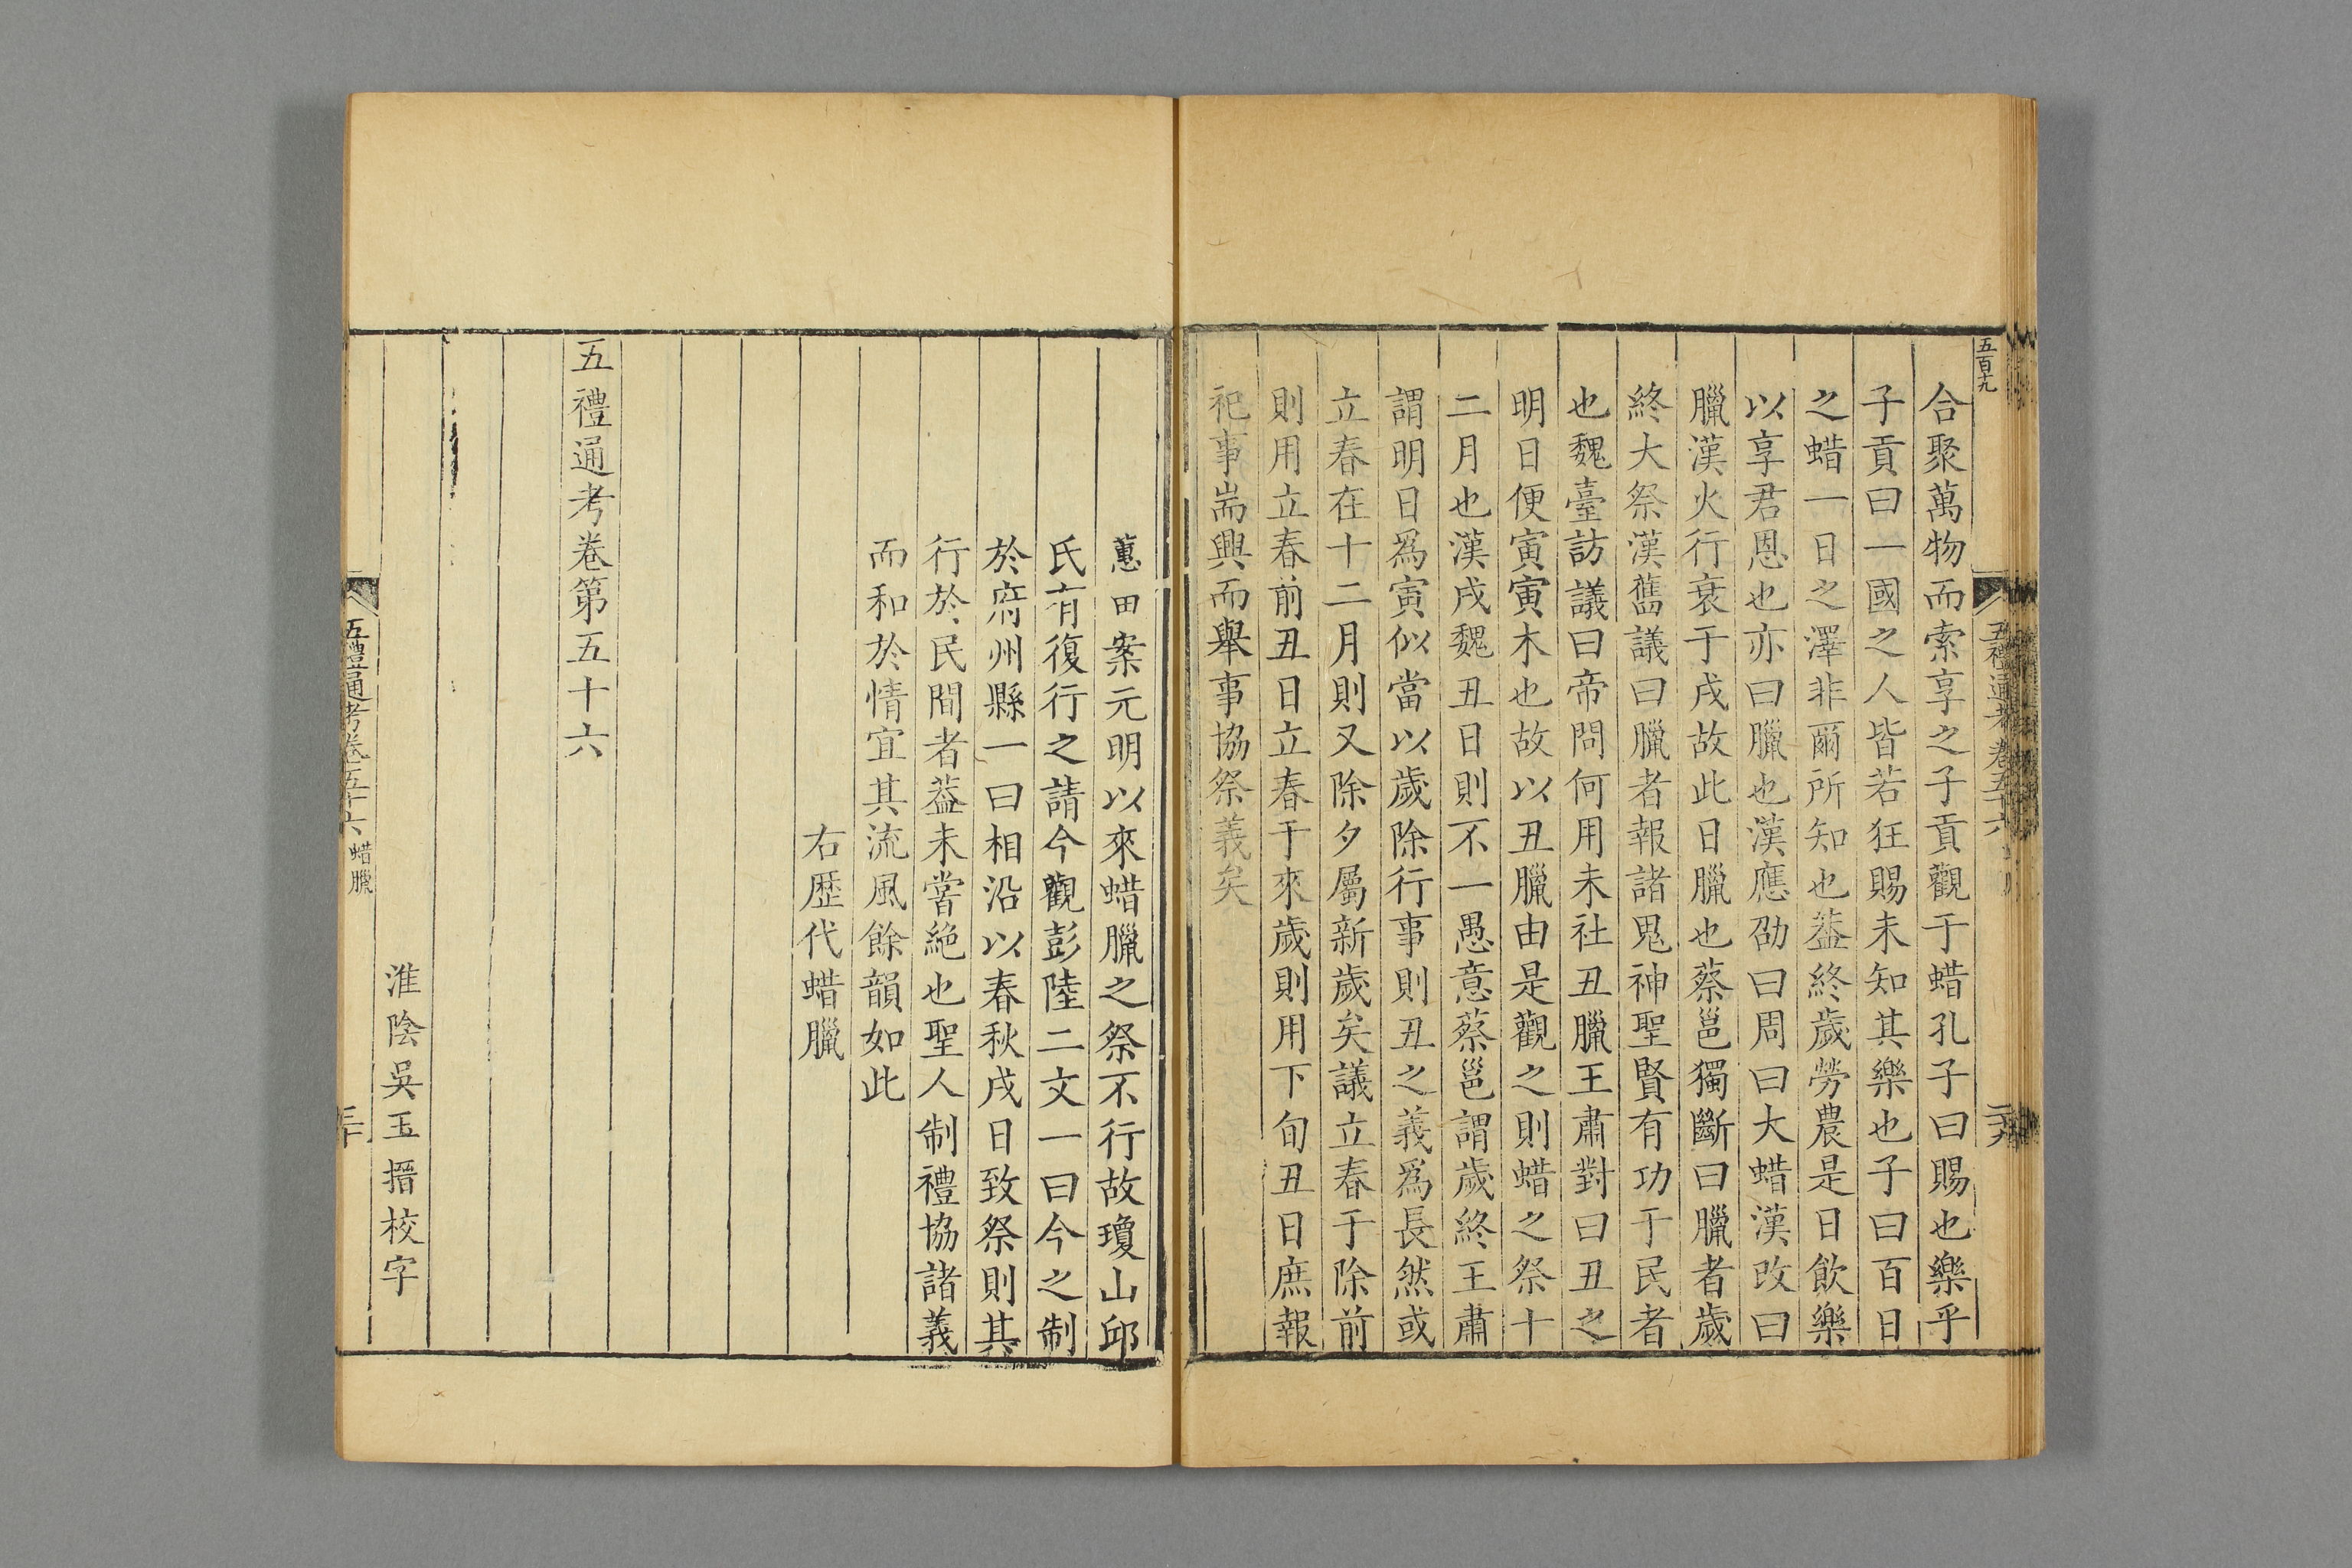 五百九
五禮通考卷五十六
合聚萬物而索享之子貢觀于蜡孔子曰賜也樂乎
子貢曰一國之人皆若狂賜未知其樂也子曰百日
之蜡一日之澤非爾所知也葢終歲勞農是日飲樂
以享君恩也亦曰臘也漢應劭曰周曰大蜡漢改曰
臘漢火行衰于戌故此日臘也蔡邕獨斷曰臘者歲
終大祭漢舊議曰臘者報諸鬼神聖賢有功于民者
也魏臺訪議曰帝問何用未社丑臘王肅對曰丑之
明日便寅寅木也故以丑臘由是觀之則蜡之祭十
二月也漢戌魏丑日則不一愚意蔡邕謂歲終王肅
謂明日為寅似當以歲除行事則丑之義為長然或
立春在十二月則又除夕屬新歲矣議立春于除前
則用立春前丑日立春于來歲則用下旬丑日庶報
祀事耑興而舉事協祭義矣
蕙田案元明以來蜡臘之祭不行故瓊山邱
氏有復行之請今觀彭陸二文一曰今之制
於府州縣一曰相沿以春秋戌日致祭則其
行於民間者葢未嘗絶也聖人制禮協諸義
而和於情宜其流風餘韻如此
右歷代蜡臘
五禮通考卷第五十六
淮陰吳玉搢校字
五禮通考卷五十六 蜡臘
三十